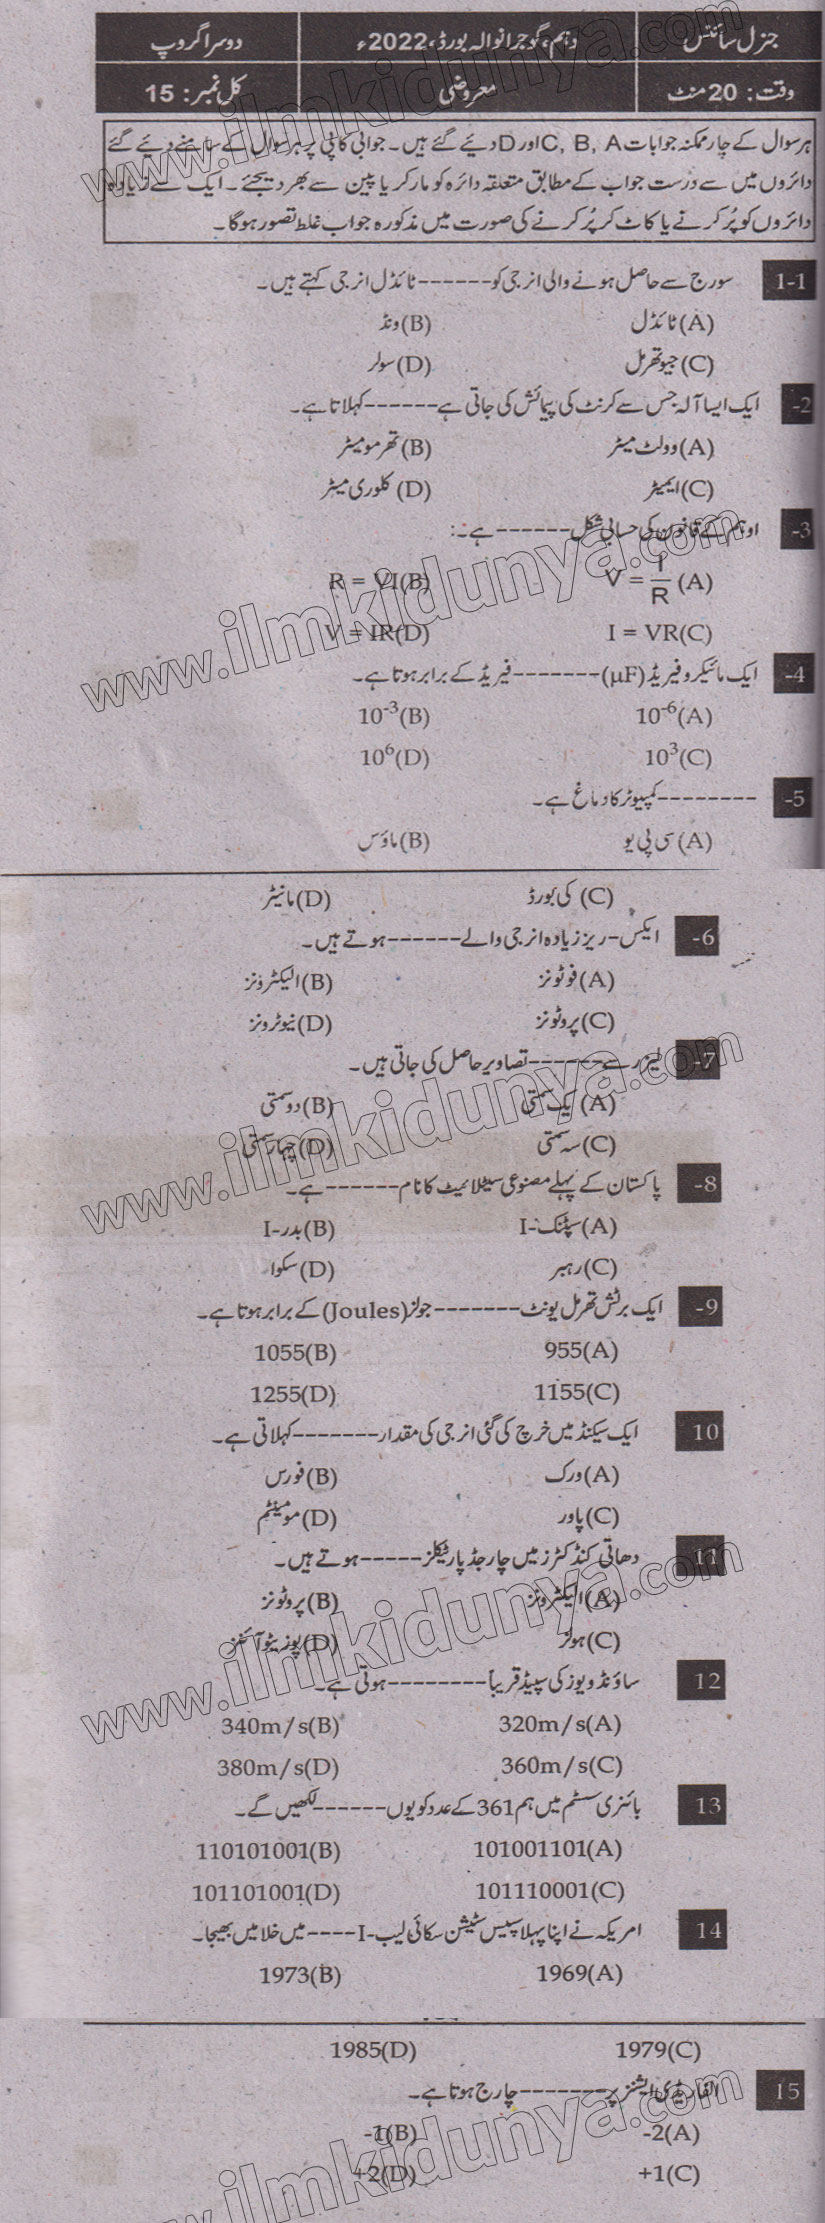 جنرل سائنس دہم، گوجرانوالہ بورڈ، 2022ء دوسرا گروپ
وقت: 20 منٹ معروضی کل نمبر: 15
ہر سوال کے چار ممکنہ جوابات C, B, A اور D دیئے گئے ہیں۔ جوابی کاپی پر ہر سوال کے سامنے دیئے گئے
دائروں میں سے درست جواب کے مطابق متعلقہ دائرہ کو مارکر یا پین سے بھر دیجئے۔ ایک سے زیادہ
دائروں کو پُر کرنے یا کاٹ کر پُر کرنے کی صورت میں مذکورہ جواب غلط تصور ہوگا۔
1-1 سورج سے حاصل ہونے والی انرجی کو ------ ٹائڈل انرجی کہتے ہیں۔
(A) ٹائڈل (B) ونڈ
(C) جیوتھرمل (D) سولر
-2 ایک ایسا آلہ جس سے کرنٹ کی پیمائش کی جاتی ہے ------ کہلاتا ہے۔
(A) وولٹ میٹر (B) تھرمومیٹر
(C) ایمیٹر (D) کلوری میٹر
-3 اوہم کے قانون کی حسابی شکل ------ ہے۔:
(A) V = I/R (B) R = VI
(C) I = VR (D) V = IR
-4 ایک مائیکرو فیریڈ (µF) ------- فیریڈ کے برابر ہوتا ہے۔
(A) 10⁻⁶ (B) 10⁻³
(C) 10³ (D) 10⁶
-5 -------- کمپیوٹر کا دماغ ہے۔
(A) سی پی یو (B) ماؤس
(C) کی بورڈ (D) مانیٹر
-6 ایکس-ریز زیادہ انرجی والے ------ ہوتے ہیں۔
(A) فوٹونز (B) الیکٹرونز
(C) پروٹونز (D) نیوٹرونز
-7 لیزر سے ------ تصاویر حاصل کی جاتی ہیں۔
(A) یک سمتی (B) دو سمتی
(C) سہ سمتی (D) چہار سمتی
-8 پاکستان کے پہلے مصنوعی سیٹلائیٹ کا نام ------ ہے۔
(A) سپٹنک-I (B) بدر-I
(C) رہبر (D) سکوار
-9 ایک برٹش تھرمل یونٹ ------- جولز (Joules) کے برابر ہوتا ہے۔
(A) 955 (B) 1055
(C) 1155 (D) 1255
10 ایک سیکنڈ میں خرچ کی گئی انرجی کی مقدار ------- کہلاتی ہے۔
(A) ورک (B) فورس
(C) پاور (D) مومینٹم
11 دھاتی کنڈکٹرز میں چارجڈ پارٹیکلز ----- ہوتے ہیں۔
(A) الیکٹرونز (B) پروٹونز
(C) ہولز (D) پوزیٹو آئنز
12 ساؤنڈ ویوز کی سپیڈ قریباً -------- ہوتی ہے۔
(A) 320m/s (B) 340m/s
(C) 360m/s (D) 380m/s
13 بائنری سسٹم میں ہم 361 کے عدد کو یوں ------ لکھیں گے۔
(A) 101001101 (B) 110101001
(C) 101110001 (D) 101101001
14 امریکہ نے اپنا پہلا سپیس سٹیشن سکائی لیب-I ---- میں خلا میں بھیجا۔
(A) 1969 (B) 1973
(C) 1979 (D) 1985
15 الفا ریڈی ایشنز پر ------- چارج ہوتا ہے۔
(A) -2 (B) -1
(C) +1 (D) +2
www.ilmkidunya.com